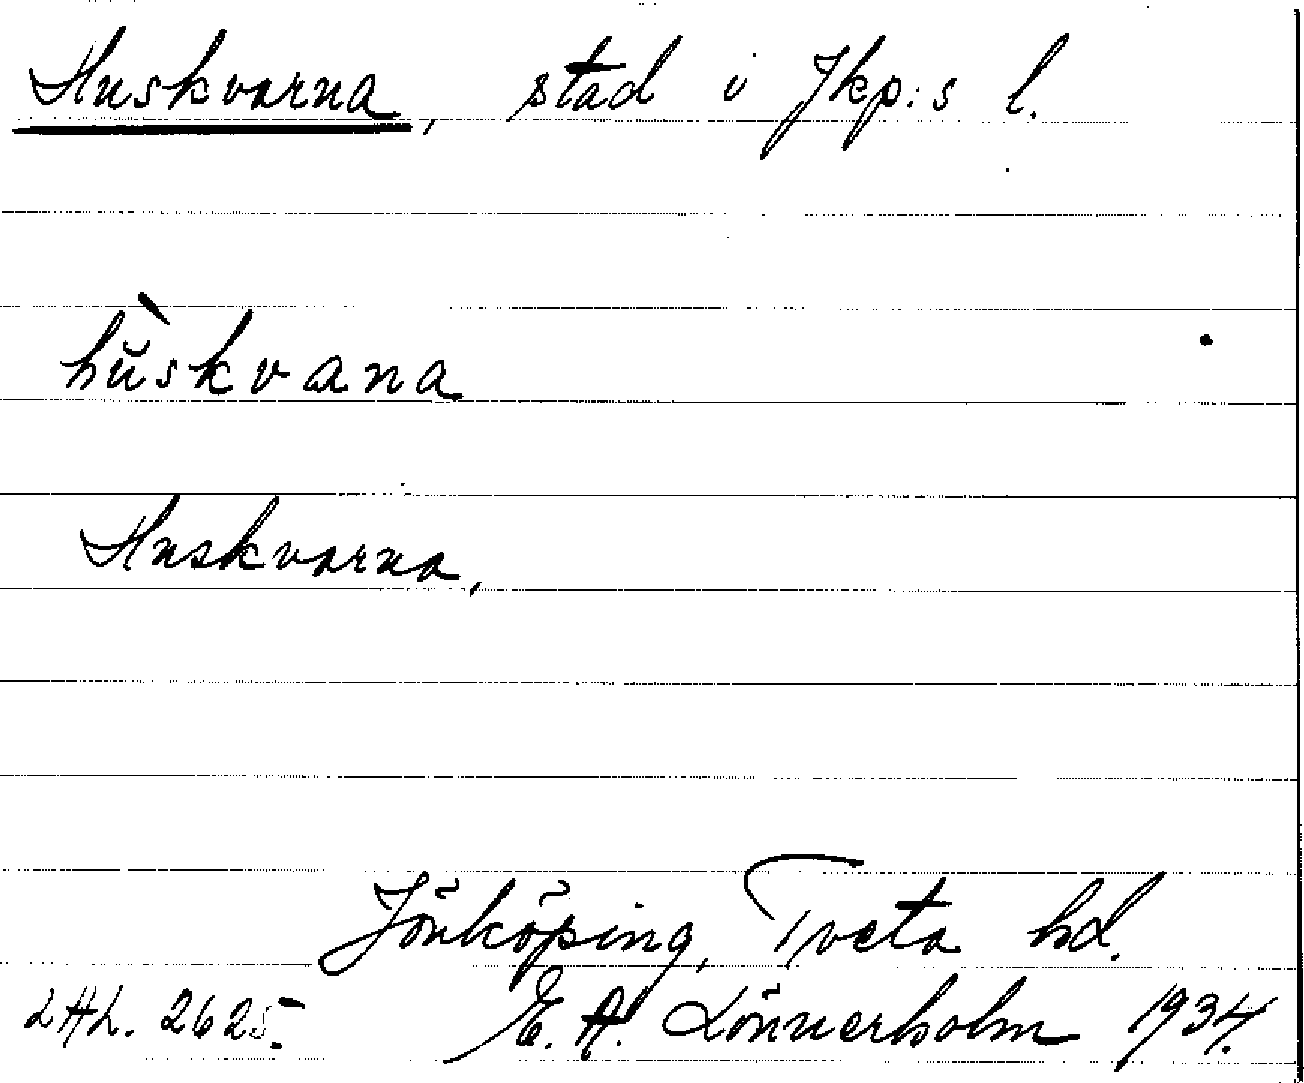 Huskvarna, stad i Jkp:s l.
hŭ̀skvana
Huskvarna,
Jönköping, Tveta hd.
LAL. 2625. E. A. Lönnerholm 1934.